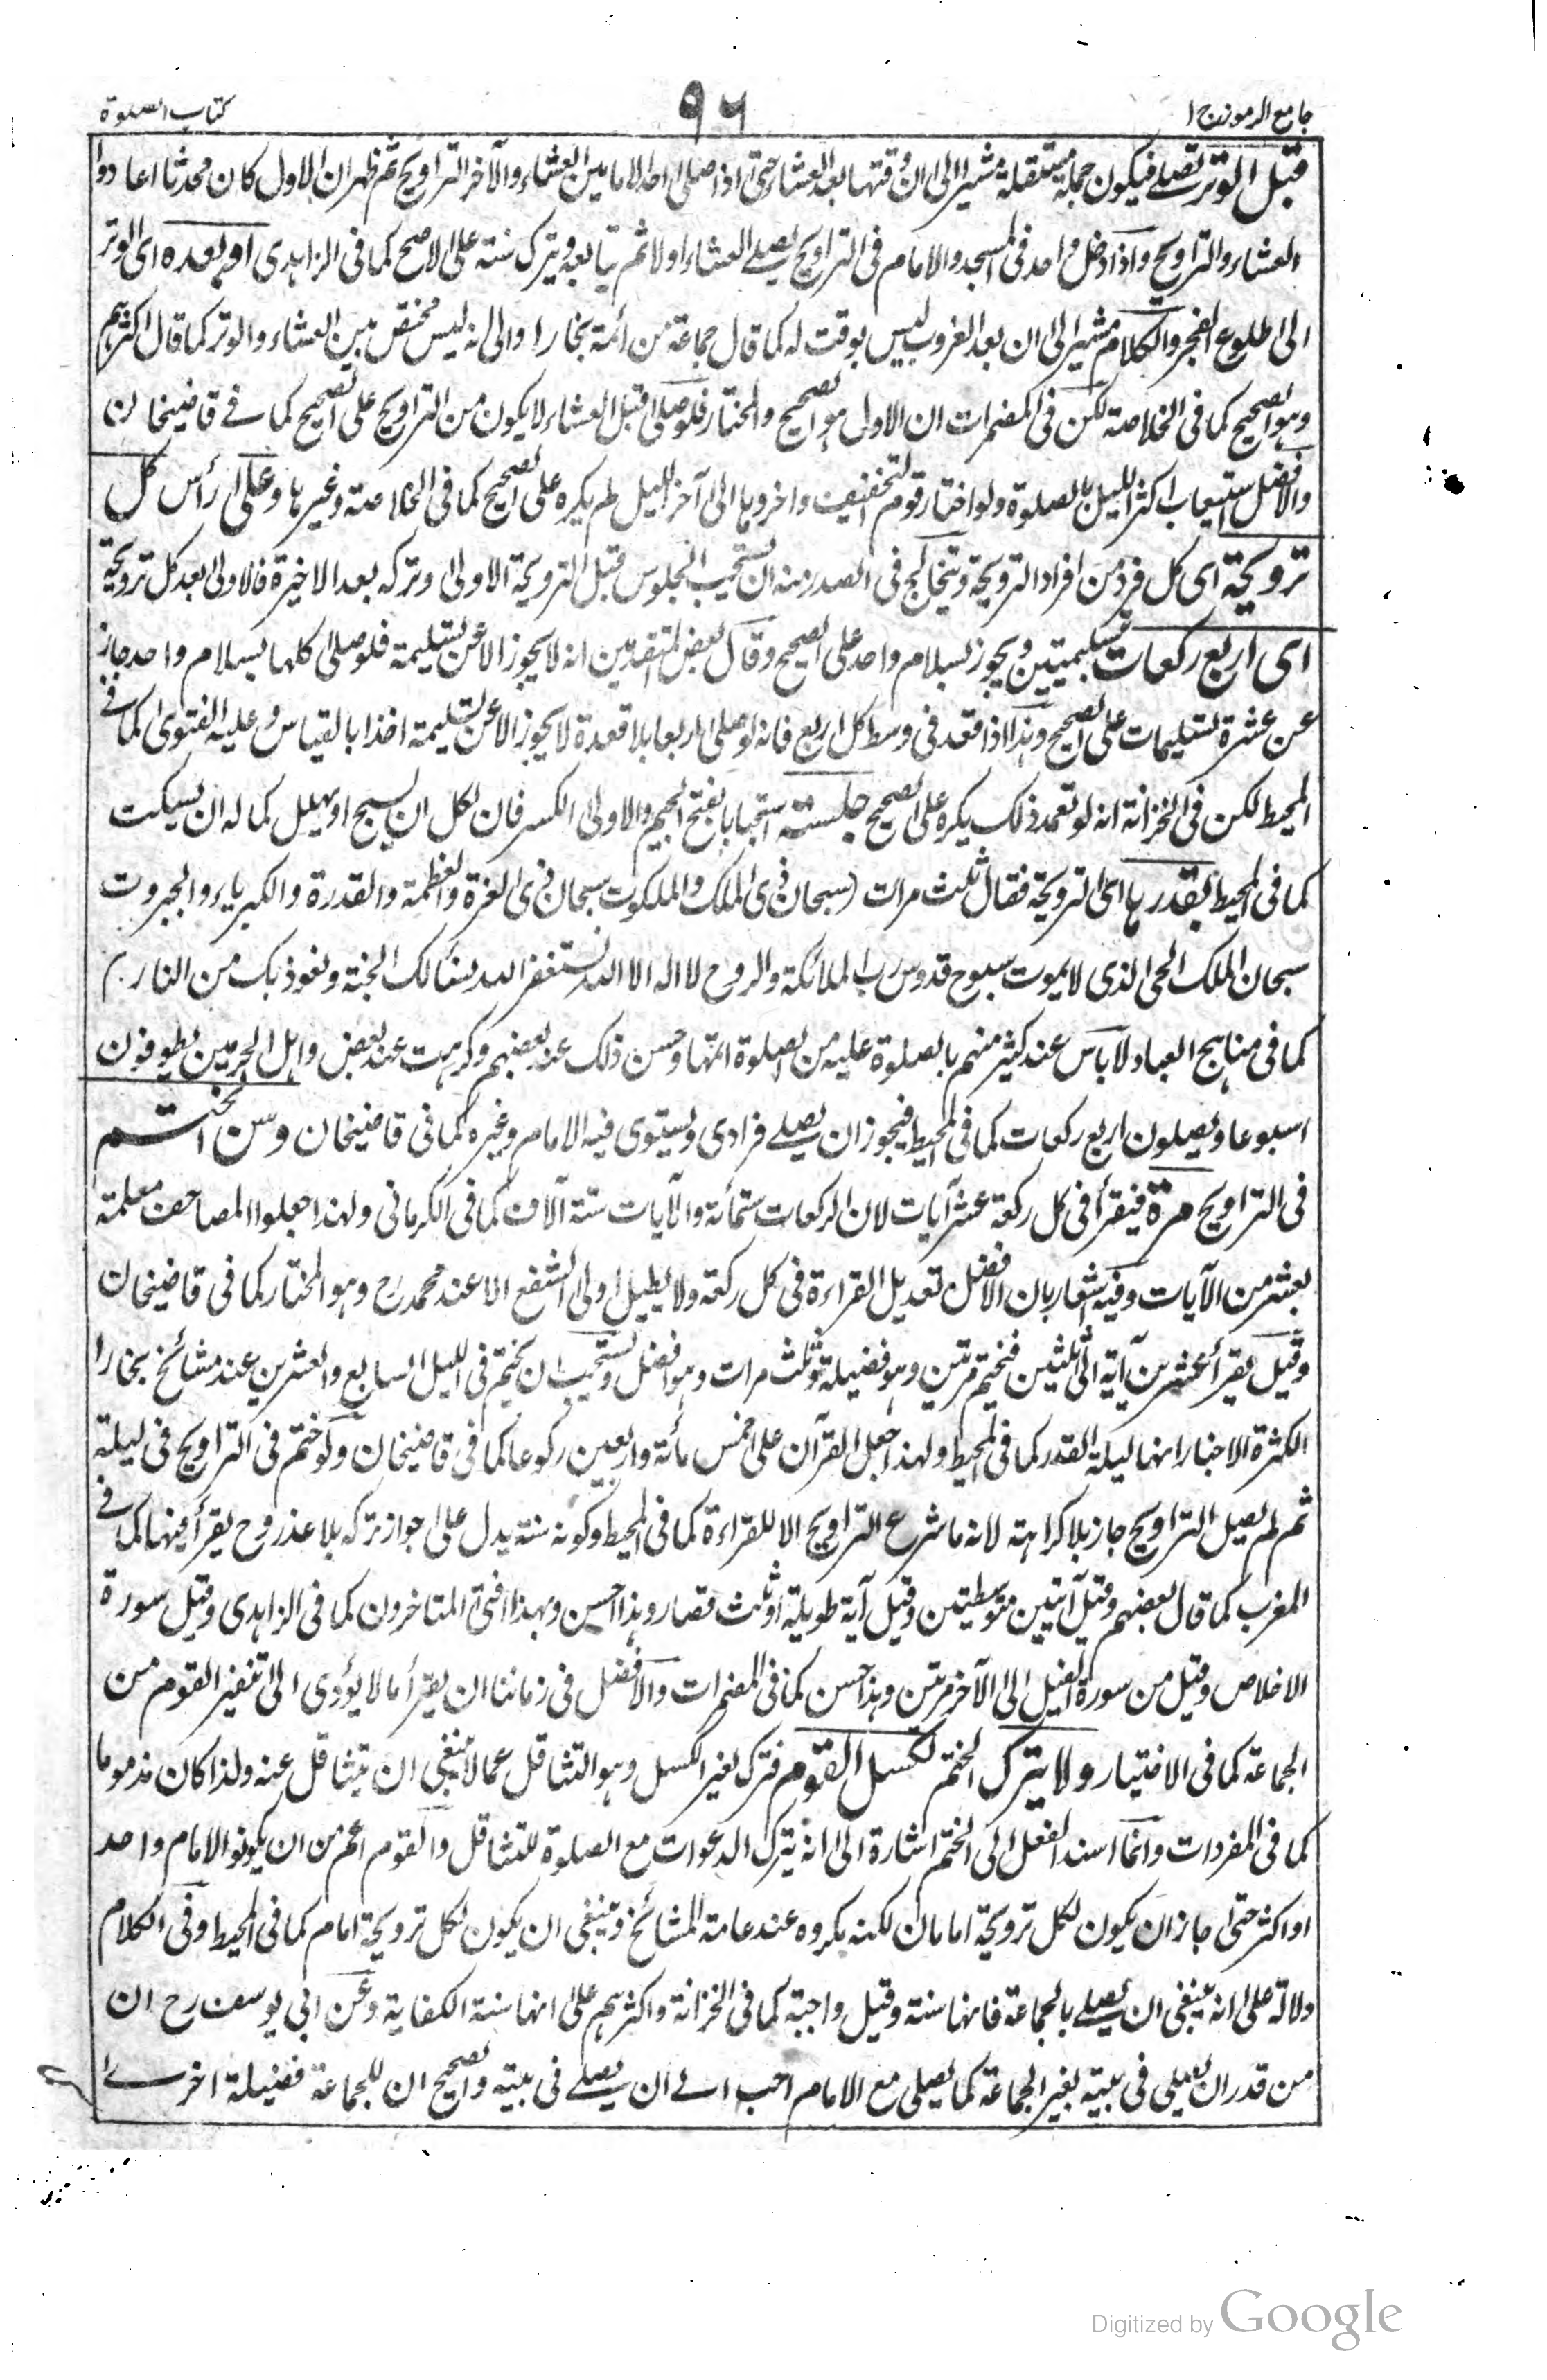 جامع الرموز ج ١
٩٦
كتاب الصلوة
قبل الوتر تصلے فيكون جملة مستقلة مشيرا الى ان وقتها بعد العشاء حتى اذا صلى احد الامامين العشاء والآخر التراويح ثم ظهر ان الاول كان محدثا اعادوا
العشاء والتراويح واذا دخل واحد فى المسجد والامام فى التراويح يصلے العشاء اولا ثم يتابعه ويترك سنته على الاصح كما فى الزاهدى او بعده اى الوتر
الى طلوع الفجر والكلام مشير الى ان بعد الغروب ليس بوقت له كما قال جماعة من ائمة بخارا والى انه ليس مختص بين العشاء والوتر كما قال اكثرهم
وهو الصحيح كما فى الخلاصة لكن فى المضمرات ان الاول هو الصحيح والمختار فلو صلى قبل العشاء لا يكون من التراويح على الصحيح كما فے قاضيخان
والافضل استيعاب اكثر الليل بالصلوة ولو اختار قوم التخفيف واخروها الى آخر الليل لم يكره على الصحيح كما فى الخلاصة وغيرها وعلى رأس كل
ترويحة اى كل فرد من افراد الترويحة ويتخالج فى الصدر منه ان يستحب الجلوس قبل الترويحة الاولى وتركه بعد الاخيرة فالاولى بعد كل ترويحة
اى اربع ركعات بتسليمتين ويجوز بسلام واحد على الصحيح وقال بعض المتقدمين انه لا يجوز الا عن تسليمة فلو صلى كلها بسلام واحد جاز
عن عشرة تسليمات على الصحيح وهذا اذا قعد فى وسط كل اربع فانه لو صلى اربعا بلا قعدة لا يجوز الا عن تسليمة اخذا بالقياس وعليه الفتوى كما فے
المحيط لكن فى الخزانة انه لو تعمد ذلك يكره على الصحيح جلسة استحبابا بفتح الجيم والاولى الكسر فان لكل ان يسبح او يهلل كما له ان يسكت
كما فى المحيط بقدرها اى الترويحة فقال ثلث مرات (سبحان ذى الملك والملكوت سبحان ذى العزة والعظمة والقدرة والكبرياء والجبروت
سبحان الملك الحى الذى لا يموت سبوح قدوس رب الملائكة والروح لا اله الا الله نستغفر الله نسئالك الجنة ونعوذ بك من النار)
كما فى مناهج العباد ولا باس عند كثير منهم بالصلوة عليه من الصلوة اتمها وحسن ذلك عند بعضهم وكرهت عند بعض واهل الحرمين يطوفون
اسبوعا ويصلون اربع ركعات كما فى المحيط فيجوز ان يصلے فرادى ويستوى فيه الامام وغيره كما فى قاضيخان وسن الختم
فى التراويح مرة فيقرأ فى كل ركعة عشر آيات لان الركعات ستمائة والآيات ستة آلاف كما فى الكرمانى ولهذا جعلوا المصاحف معلمة
بعشر من الآيات وفيه اشعار بان الافضل تعديل القراءة فى كل ركعة ولا يطيل اولى الشفع الا عند محمد رح وهو المختار كما فى قاضيخان
وقيل يقرأ عشرين آية الى ثلثين فيختم مرتين وهو فضيلة وثلث مرات وهو افضل ويستحب ان يختم فى الليل السابع والعشرين عند مشائخ بخارا
لكثرة الاخبار انها ليلة القدر كما فى المحيط ولهذا جعل القرآن على خمس مائة واربعين ركوعا كما فى قاضيخان ولو ختم فى التراويح فى ليلة
ثم لم يصل التراويح جاز بلا كراهة لانه ما شرع التراويح الا للقراءة كما فى المحيط وكونه سنة يدل على جواز تركه بلا عذر وح يقرأ فيها كما فے
المغرب كما قال بعضهم وقيل آيتين متوسطيتن وقيل آية طويلة او ثلث قصار وهذا احسن وبهذا افتى المتاخرون كما فى الزاهدى وقيل سورة
الاخلاص وقيل من سورة الفيل الى الآخر مرتين وهذا حسن كما فى المضمرات والافضل فى زماننا ان يقرأ ما لا يؤدى الى تنفير القوم من
الجماعة كما فى الاختيار ولا يترك الختم لكسل القوم فترك لغير الكسل وهو التثاقل عما لا ينبغى ان يتثاقل عنه ولذا كان مذموما
كما فى المفردات وانما اسند الفعل الى الختم اشارة الى انه يترك الدعوات مع الصلوة للتثاقل والقوم اعم من ان يكونوا لامام واحد
او اكثر حتى جاز ان يكون لكل ترويحة امامان لكنه مكروه عند عامة المشائخ وينبغى ان يكون لكل ترويحة امام كما فى المحيط وفى الكلام
دلالة على انه ينبغى ان يصلے بالجماعة فانها سنة وقيل واجبة كما فى الخزانة واكثرهم على انها سنة الكفاية وعن ابى يوسف رح ان
من قدر ان يصلى فى بيته بغير الجماعة كما يصلى مع الامام احب الے ان يصلے فى بيته والصحيح ان للجماعة فضيلة اخرے
Digitized by Google